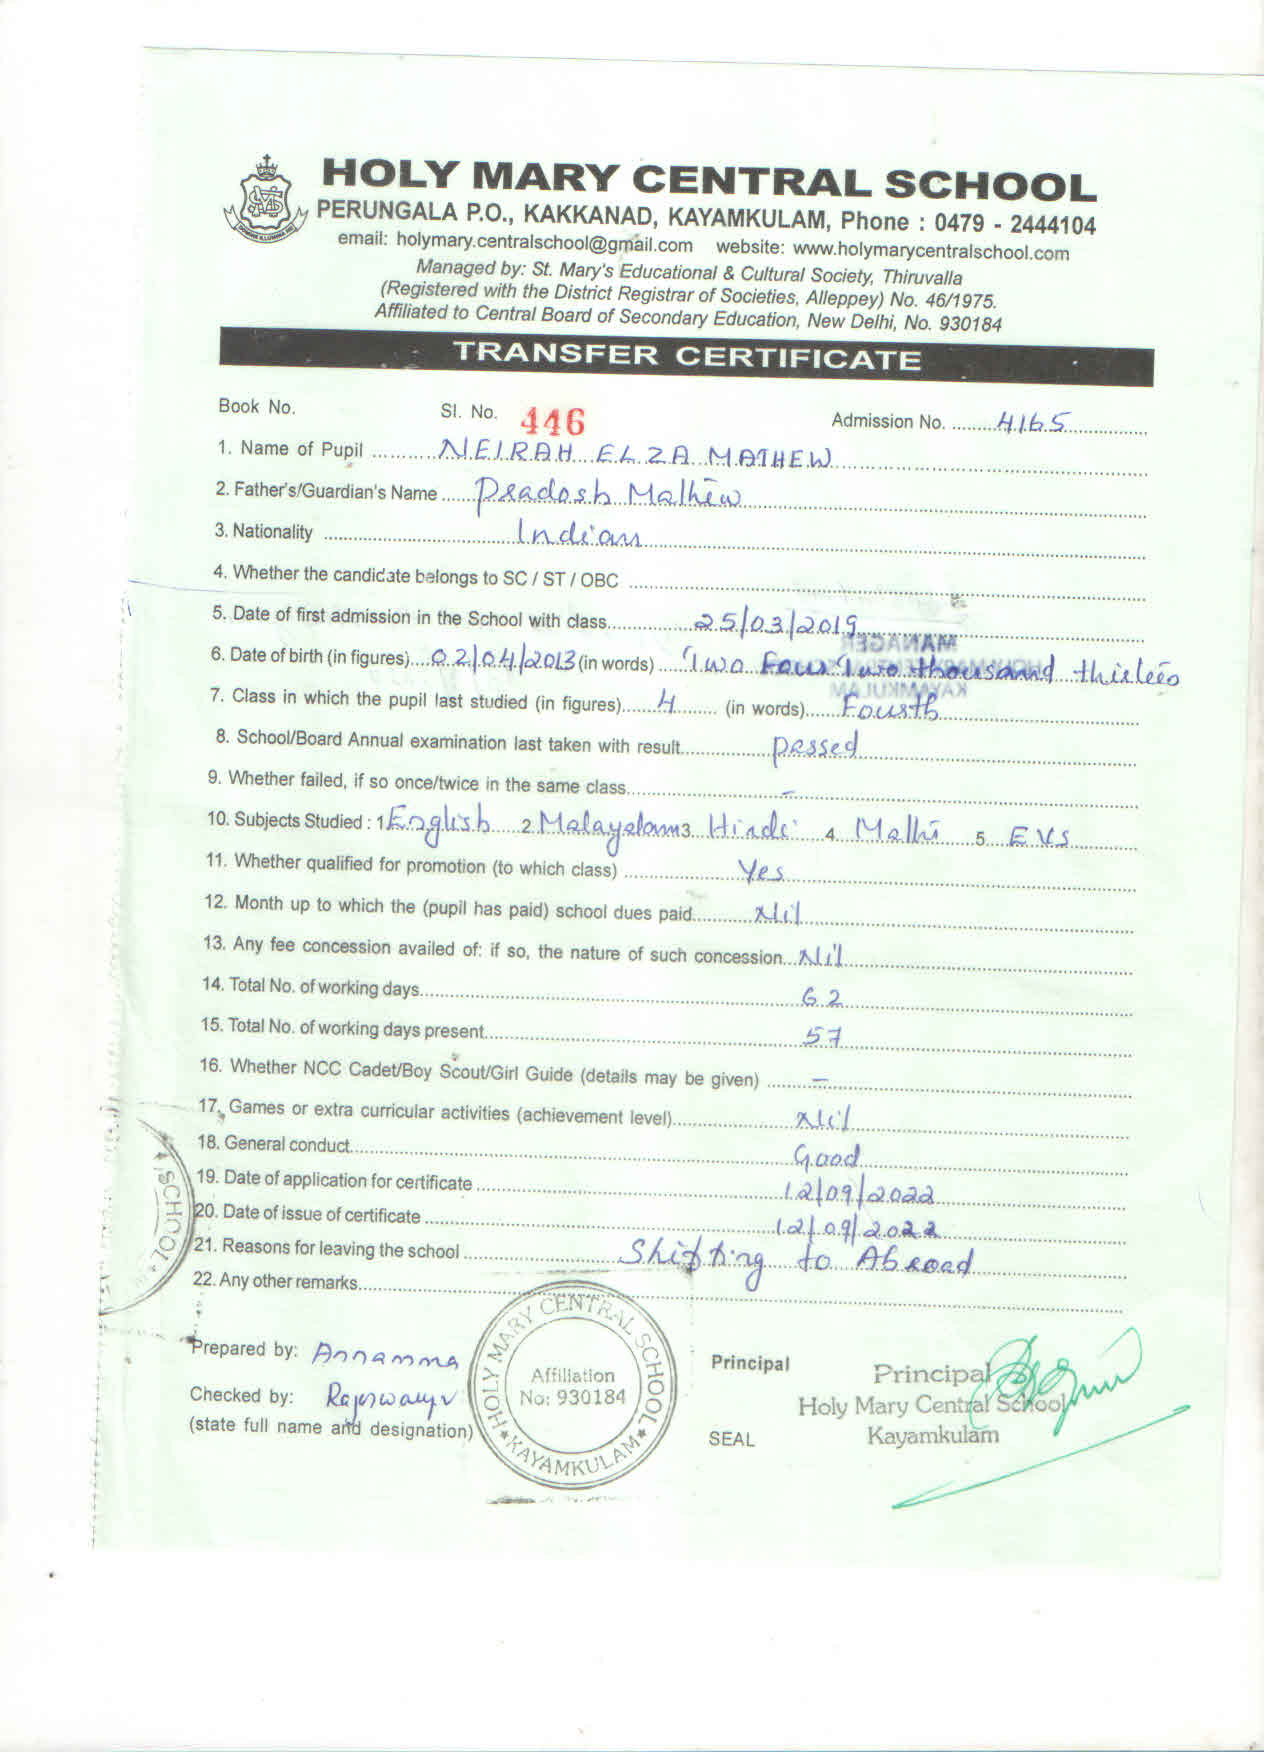 HOLY MARY CENTRAL SCHOOL
PERUNGALA P.O., KAKKANAD, KAYAMKULAM, Phone : 0479 - 2444104
email: holymary.centralschool@gmail.com website: www.holymarycentralschool.com
Managed by: St. Mary's Educational & Cultural Society, Thiruvalla
(Registered with the District Registrar of Societies, Alleppey) No. 46/1975.
Affiliated to Central Board of Secondary Education, New Delhi, No. 930184
TRANSFER CERTIFICATE
Book No. Sl. No. 446 Admission No. 4165
1. Name of Pupil NEIRAH ELZA MATHEW
2. Father's/Guardian's Name Pradosh Mathew
3. Nationality Indian
4. Whether the candidate belongs to SC / ST / OBC
5. Date of first admission in the School with class 25/03/2019
6. Date of birth (in figures) 02/04/2013 (in words) Two Four Two thousand thirteen
7. Class in which the pupil last studied (in figures) 4 (in words) Fourth
8. School/Board Annual examination last taken with result passed
9. Whether failed, if so once/twice in the same class –
10. Subjects Studied : 1 English 2 Malayalam 3 Hindi 4 Maths 5 EVS
11. Whether qualified for promotion (to which class) Yes
12. Month up to which the (pupil has paid) school dues paid Nil
13. Any fee concession availed of: if so, the nature of such concession Nil
14. Total No. of working days 62
15. Total No. of working days present 57
16. Whether NCC Cadet/Boy Scout/Girl Guide (details may be given) –
17. Games or extra curricular activities (achievement level) Nil
18. General conduct Good
19. Date of application for certificate 12/09/2022
20. Date of issue of certificate 12/09/2022
21. Reasons for leaving the school Shifting to Abroad
22. Any other remarks
Prepared by: Annamma
Checked by:
(state full name and designation)
HOLY MARY CENTRAL SCHOOL
KAYAMKULAM
Affiliation
No: 930184
Principal
SEAL
Principal
Holy Mary Central School
Kayamkulam
SCHOOL
MANAGER
KAYAMKULAM